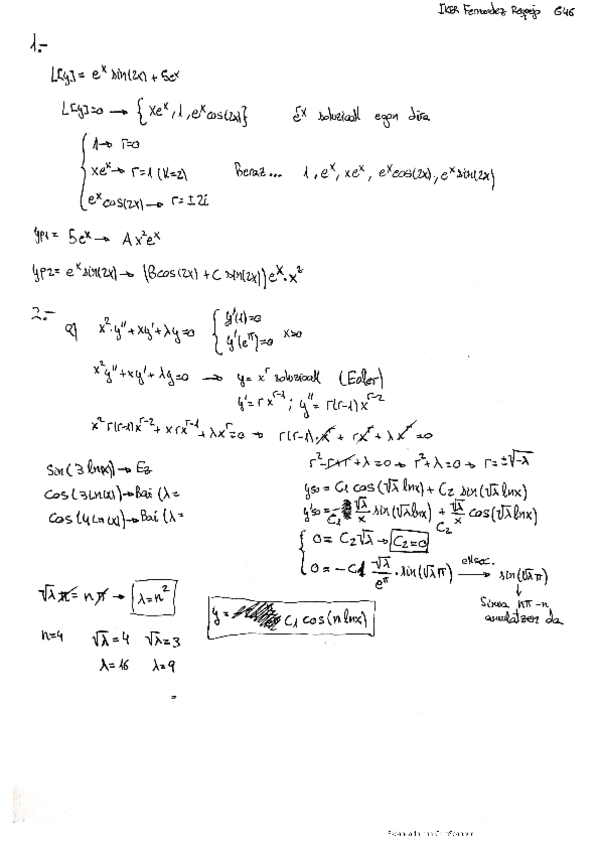 IKER Fernandez G46
1.-
L[y] = e^x sin(2x) + 5e^x
L[y]=0 → {xe^x, 1, e^x cos(2x)} e^x soluzioak egon dira
1 → r=0
xe^x → r=1 (k=2) Beraz... 1, e^x, xe^x, e^x cos(2x), e^x sin(2x)
e^x cos(2x) → r=1±2i
yp1 = 5e^x → Ax²e^x
yp2 = e^x sin(2x) → (Bcos(2x) + C sin(2x))e^x·x²
2.-
a) x²·y'' + xy' + λy = 0 { y'(1)=0
y'(e^π)=0 x>0
x²y'' + xy' + λy = 0 → y = x^r soluzioak (Euler)
y' = rx^(r-1); y'' = r(r-1)x^(r-2)
x² r(r-1)x^(r-2) + x r x^(r-1) + λx^r = 0 → r(r-1)·x^r + rx^r + λx^r = 0
r² - r + r + λ = 0 → r² + λ = 0 → r = ±√-λ
sin(3 lnx) → Ez
cos(3 ln(x)) → Bai (λ=
cos(4 Ln(x)) → Bai (λ=
y = C1 cos(√λ lnx) + C2 sin(√λ lnx)
y' = -C1 √λ/x sin(√λ lnx) + C2 √λ/x cos(√λ lnx)
0 = C2√λ → C2=0
0 = -C1 √λ/e^π · sin(√λπ) → sin(√λπ)
Sinua nπ-n
anulatzen da
√λ π = nπ → λ=n²
y = C1 cos(n lnx)
n=4 √λ=4 √λ=3
λ=16 λ=9
=